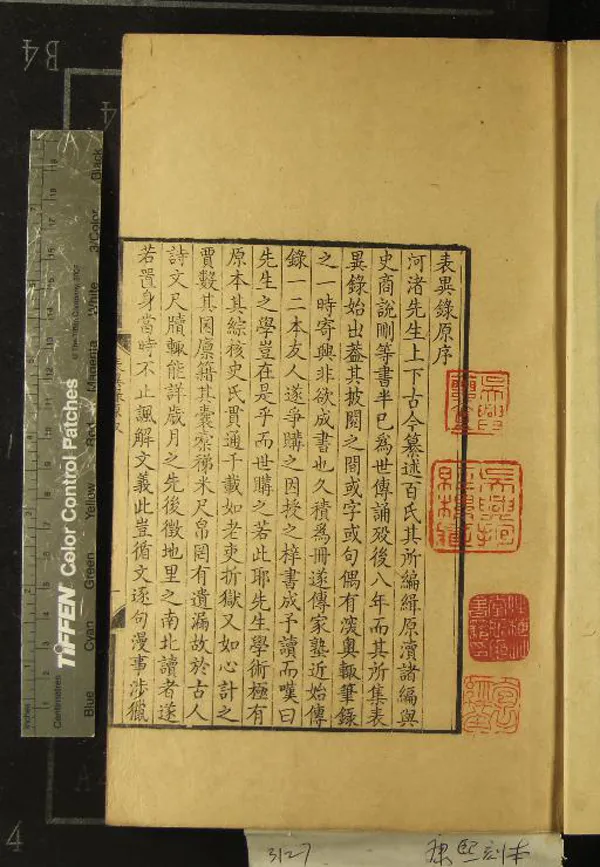 表異錄原序
河渚先生上下古今纂述百氏其所編緝原瀆諸編與
史商說刪等書半已爲世傳誦殁後八年而其所集表
異錄始出葢其披閱之間或字或句偶有濙奥輙筆錄
之一時寄興非欲成書也久積爲冊遂傳家塾近始傳
錄一二本友人遂爭購之因授之梓書成予讀而嘆曰
先生之學豈在是乎而世購之若此耶先生學術極有
原本其綜核史氏貫通千載如老吏折獄又如心計之
賈數其囷廪籍其囊槖稊米尺帛罔有遺漏故於古人
詩文尺牘輙能詳歲月之先後徵地里之南北讀者遂
若置身當時不止諷解文義此豈循文逐句漫事涉獵
TIFFEN Color Control Patches
© The Tiffen Company, 2007
Inches
Centimetres
Blue
Cyan
Green
Yellow
Red
Magenta
White
3/Color
Black
B4
4
4
3127
康熙刻本